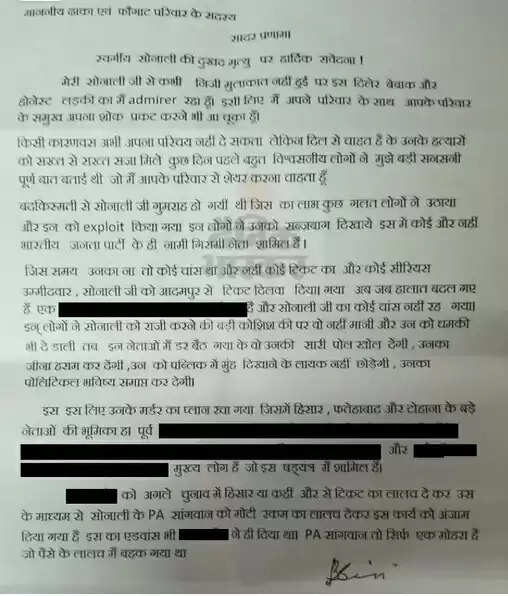 माननीय ढाका एवं फौगाट परिवार के सदस्य
सादर प्रणामा
स्वर्गीय सोनाली की दुखद मृत्यु पर हार्दिक संवेदना !
मेरी सोनाली जी से कभी निजी मुलाकात नहीं हुई पर इस दिलेर बेबाक और
होनेस्ट लड़की का मैं admirer रहा हूँ। इसी लिए मैं अपने परिवार के साथ आपके परिवार
के समुख अपना शोक प्रकट करने भी आ चूका हूँ।
किसी कारणवस अभी अपना परिचय नहीं दे सकता लेकिन दिल से चाहत है के उनके हत्यारों
को सख्त से सख्त सजा मिले कुछ दिन पहले बहुत विश्वसनीय लोगों ने मुझे बड़ी सनसनी
पूर्ण बात बताई थी जो मैं आपके परिवार से शेयर करना चाहता हूँ
बदकिस्मती से सोनाली जी गुमराह हो गयीं थी जिस का लाभ कुछ गलत लोगों ने उठाया
और इन को exploit किया गया इन लोगों ने उनको सब्जबाग दिखाये इस में कोई और नहीं
भारतीय जनता पार्टी के ही नामी गिरामी नेता शामिल हैं।
दैनिक भास्कर
जिस समय उनका ना तो कोई चांस था और नहीं कोई टिकट का और कोई सीरियस
उम्मीदवार , सोनाली जी को आदमपुर से टिकट दिलवा दिया। गया अब जब हालात बदल गए
हैं एक है और सोनाली जी का कोई चांस नहीं रह गया।
इन् लोगों ने सोनाली को राजी करने की बड़ी कोशिश की पर वो नहीं मानी और उन को धमकी
भी दे डाली तब इन नेताओं में डर बैठ गया के वो उनकी सारी पोल खोल देंगी , उनका
जीना हराम कर देंगी ,उन को पब्लिक में मुंह दिखाने के लायक नहीं छोड़ेगी , उनका
पोलिटिकल भविष्य समाप्त कर देगी।
इस इस लिए उनके मर्डर का प्लान रचा गया जिसमें हिसार , फतेहाबाद और टोहाना के बड़े
नेताओं की भूमिका हा पूर्व
और
मुख्य लोग हैं जो इस षड्यंत्र में शामिल हैं।
को अगले चुनाव में हिसार या कहीं और से टिकट का लालच दे कर उस
के माध्यम से सोनाली के PA सांगवान को मोटी रकम का लालच देकर इस कार्य को अंजाम
दिया गया हैं इस का एडवांस भी ने ही दिया था। PA सांगवान तो सिर्फ एक मोहरा है
जो पैसे के लालच में बहक गया था